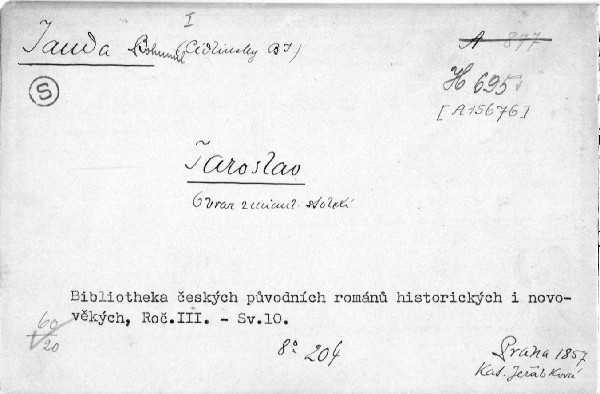 I
Janda Bohumil (Cidlinský B J)
A 877
S
H 695
[A15676]
Jaroslav
Obraz z minul. století
Bibliotheka českých původních románů historických i novo-
věkých, Roč.III. - Sv.10.
60
20
8° 204
Praha 1857
Kat. Jeřábková